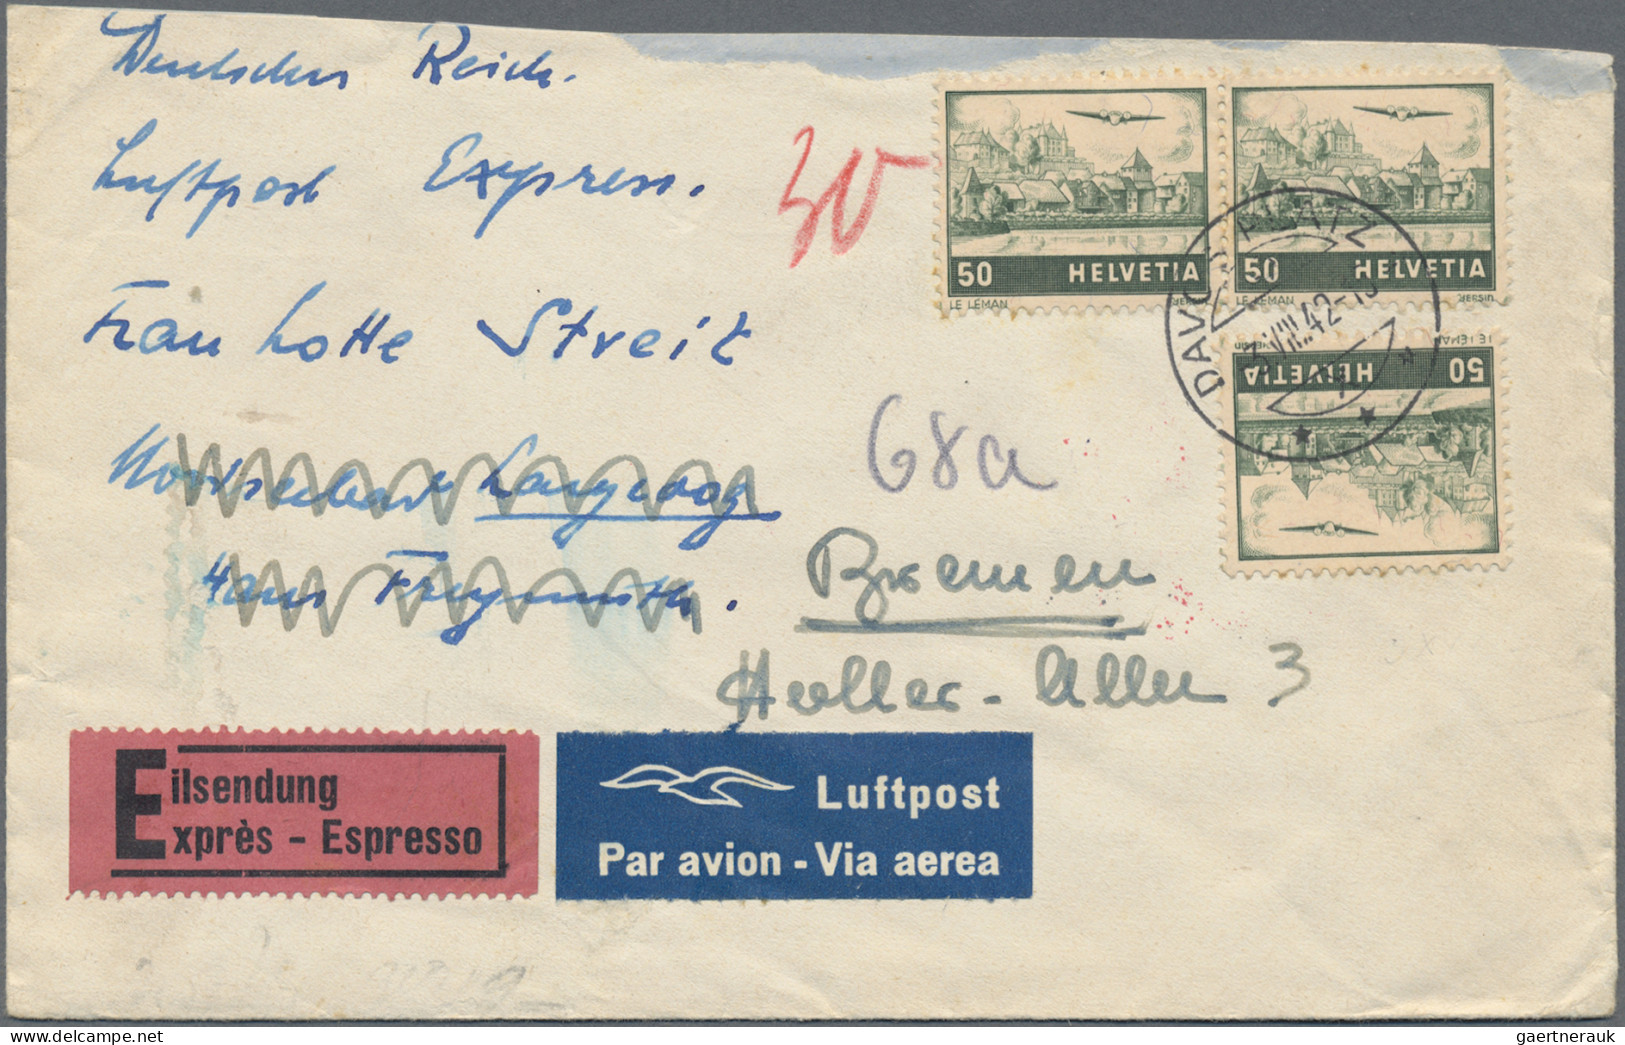 Deutsches Reich.
Luftpost Express.
30
Frau Lotte Streit
Nordseebad Langeoog
Haus Freymuth.
68a
Bremen
Holler-Allee 3
50 HELVETIA
LE LEMAN BERSIER
50 HELVETIA
LE LEMAN BERSIER
50 HELVETIA
LE LEMAN
DAVOS PLATZ
3.VIII.42
Eilsendung
Exprès - Espresso
Luftpost
Par avion - Via aerea
gaertnerauk